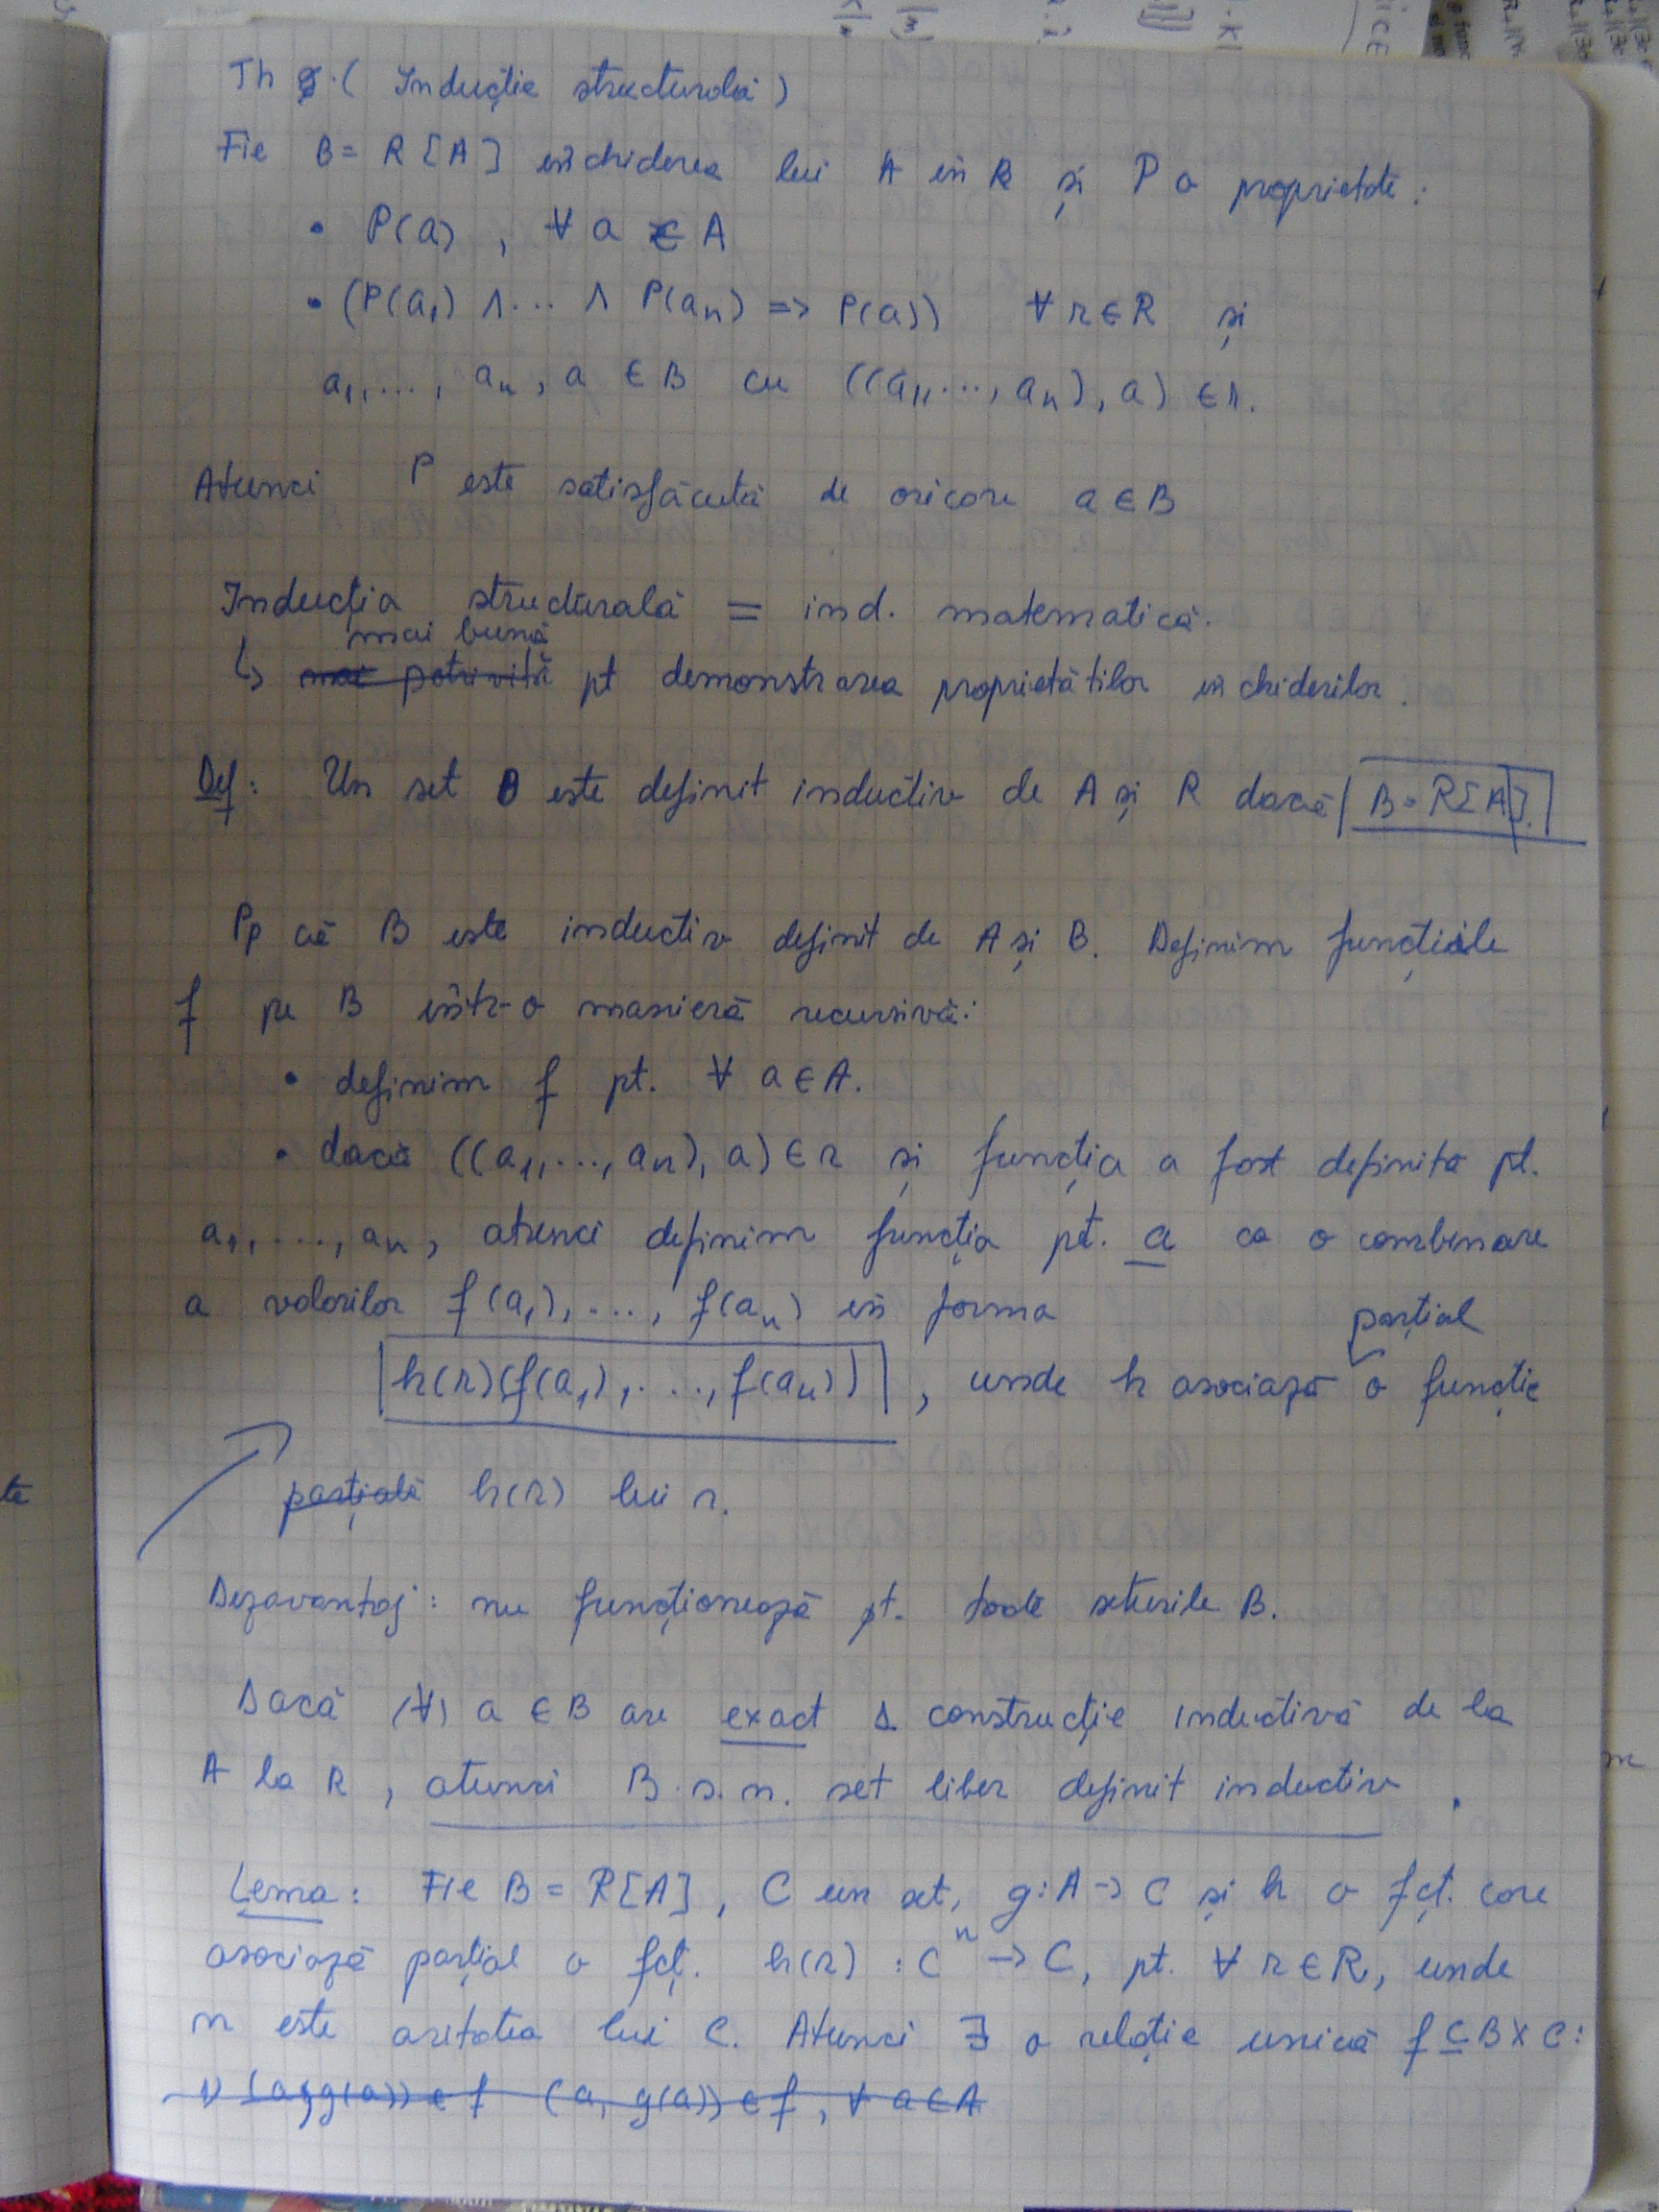 Th . ( Inducție structurală )
Fie B = R [A] închiderea lui A în R și P o proprietate :
• P(a) , ∀ a ∈ A
• (P(a₁) ∧ ... ∧ P(aₙ) => P(a)) ∀ r ∈ R și
a₁, ..., aₙ, a ∈ B cu ((a₁, ..., aₙ), a) ∈ r.
Atunci P este satisfăcută de oricare a ∈ B
Inducția structurală = ind. matematică.
mai bună
↳ mai potrivită pt demonstrarea proprietăților închiderilor.
Def : Un set B este definit inductiv de A și R dacă B = R[A].
Pp că B este inductiv definit de A și B. Definim funcțiile
f pe B într-o manieră recursivă :
• definim f pt. ∀ a ∈ A.
• dacă ((a₁, ..., aₙ), a) ∈ r și funcția a fost definită pt.
a₁, ..., aₙ, atunci definim funcția pt. a ca o combinare
a valorilor f(a₁), ..., f(aₙ) în forma
parțial
h(r)(f(a₁), ..., f(aₙ)) , unde h asociază o funcție
parțială h(r) lui r.
Dezavantaj : nu funcționează pt. toate seturile B.
Dacă (∀) a ∈ B are exact 1 construcție inductivă de la
A la R , atunci B s.n. set liber definit inductiv .
Lema : Fie B = R[A] , C un set, g : A -> C și h o fct. care
asociază parțial o fcț. h(r) : Cⁿ -> C, pt. ∀ r ∈ R, unde
n este aritatea lui C. Atunci ∃ o relație unică f ⊆ B X C :
1) (a, g(a)) ∈ f (a, g(a)) ∈ f , ∀ a ∈ A